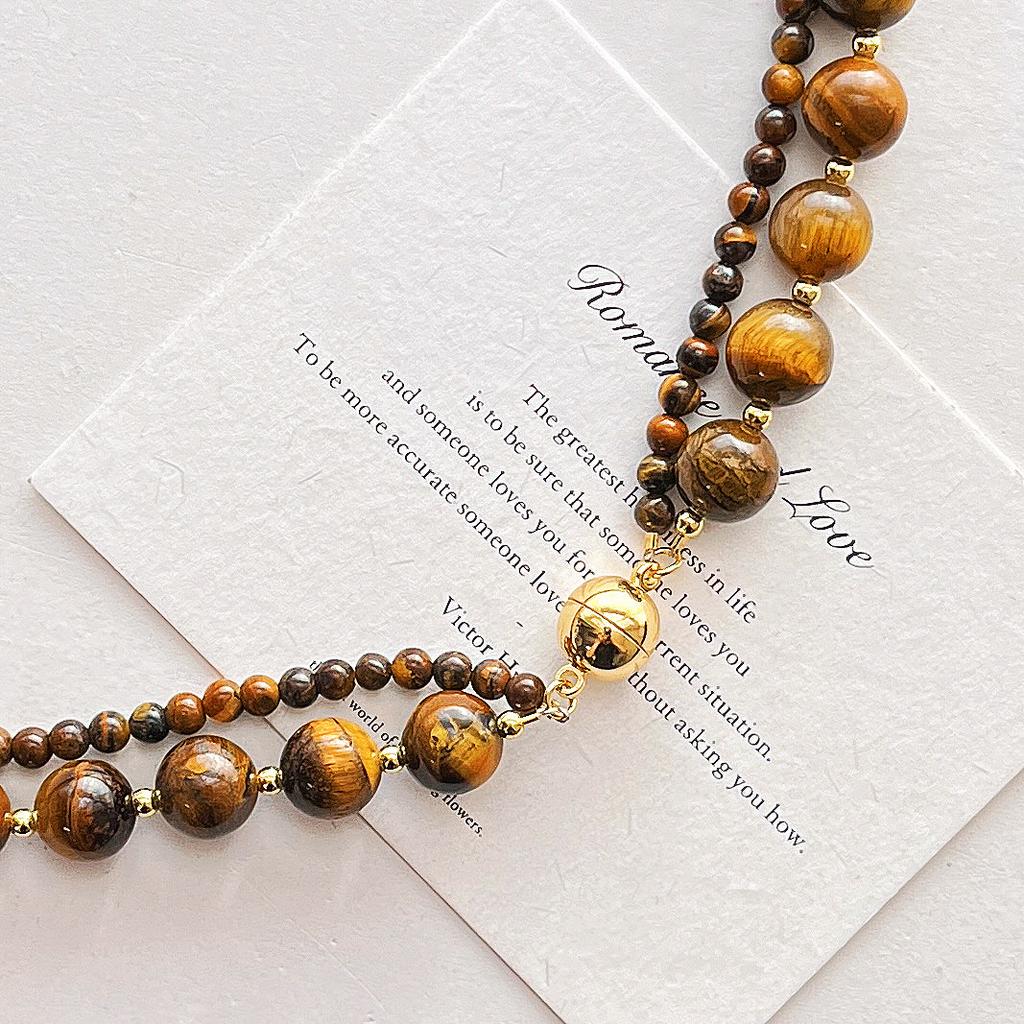 Romance Love
The greatest happiness in life
is to be sure that someone loves you
and someone loves you for current situation.
To be more accurate someone loves without asking you how.
-
Victor
world of
flowers.